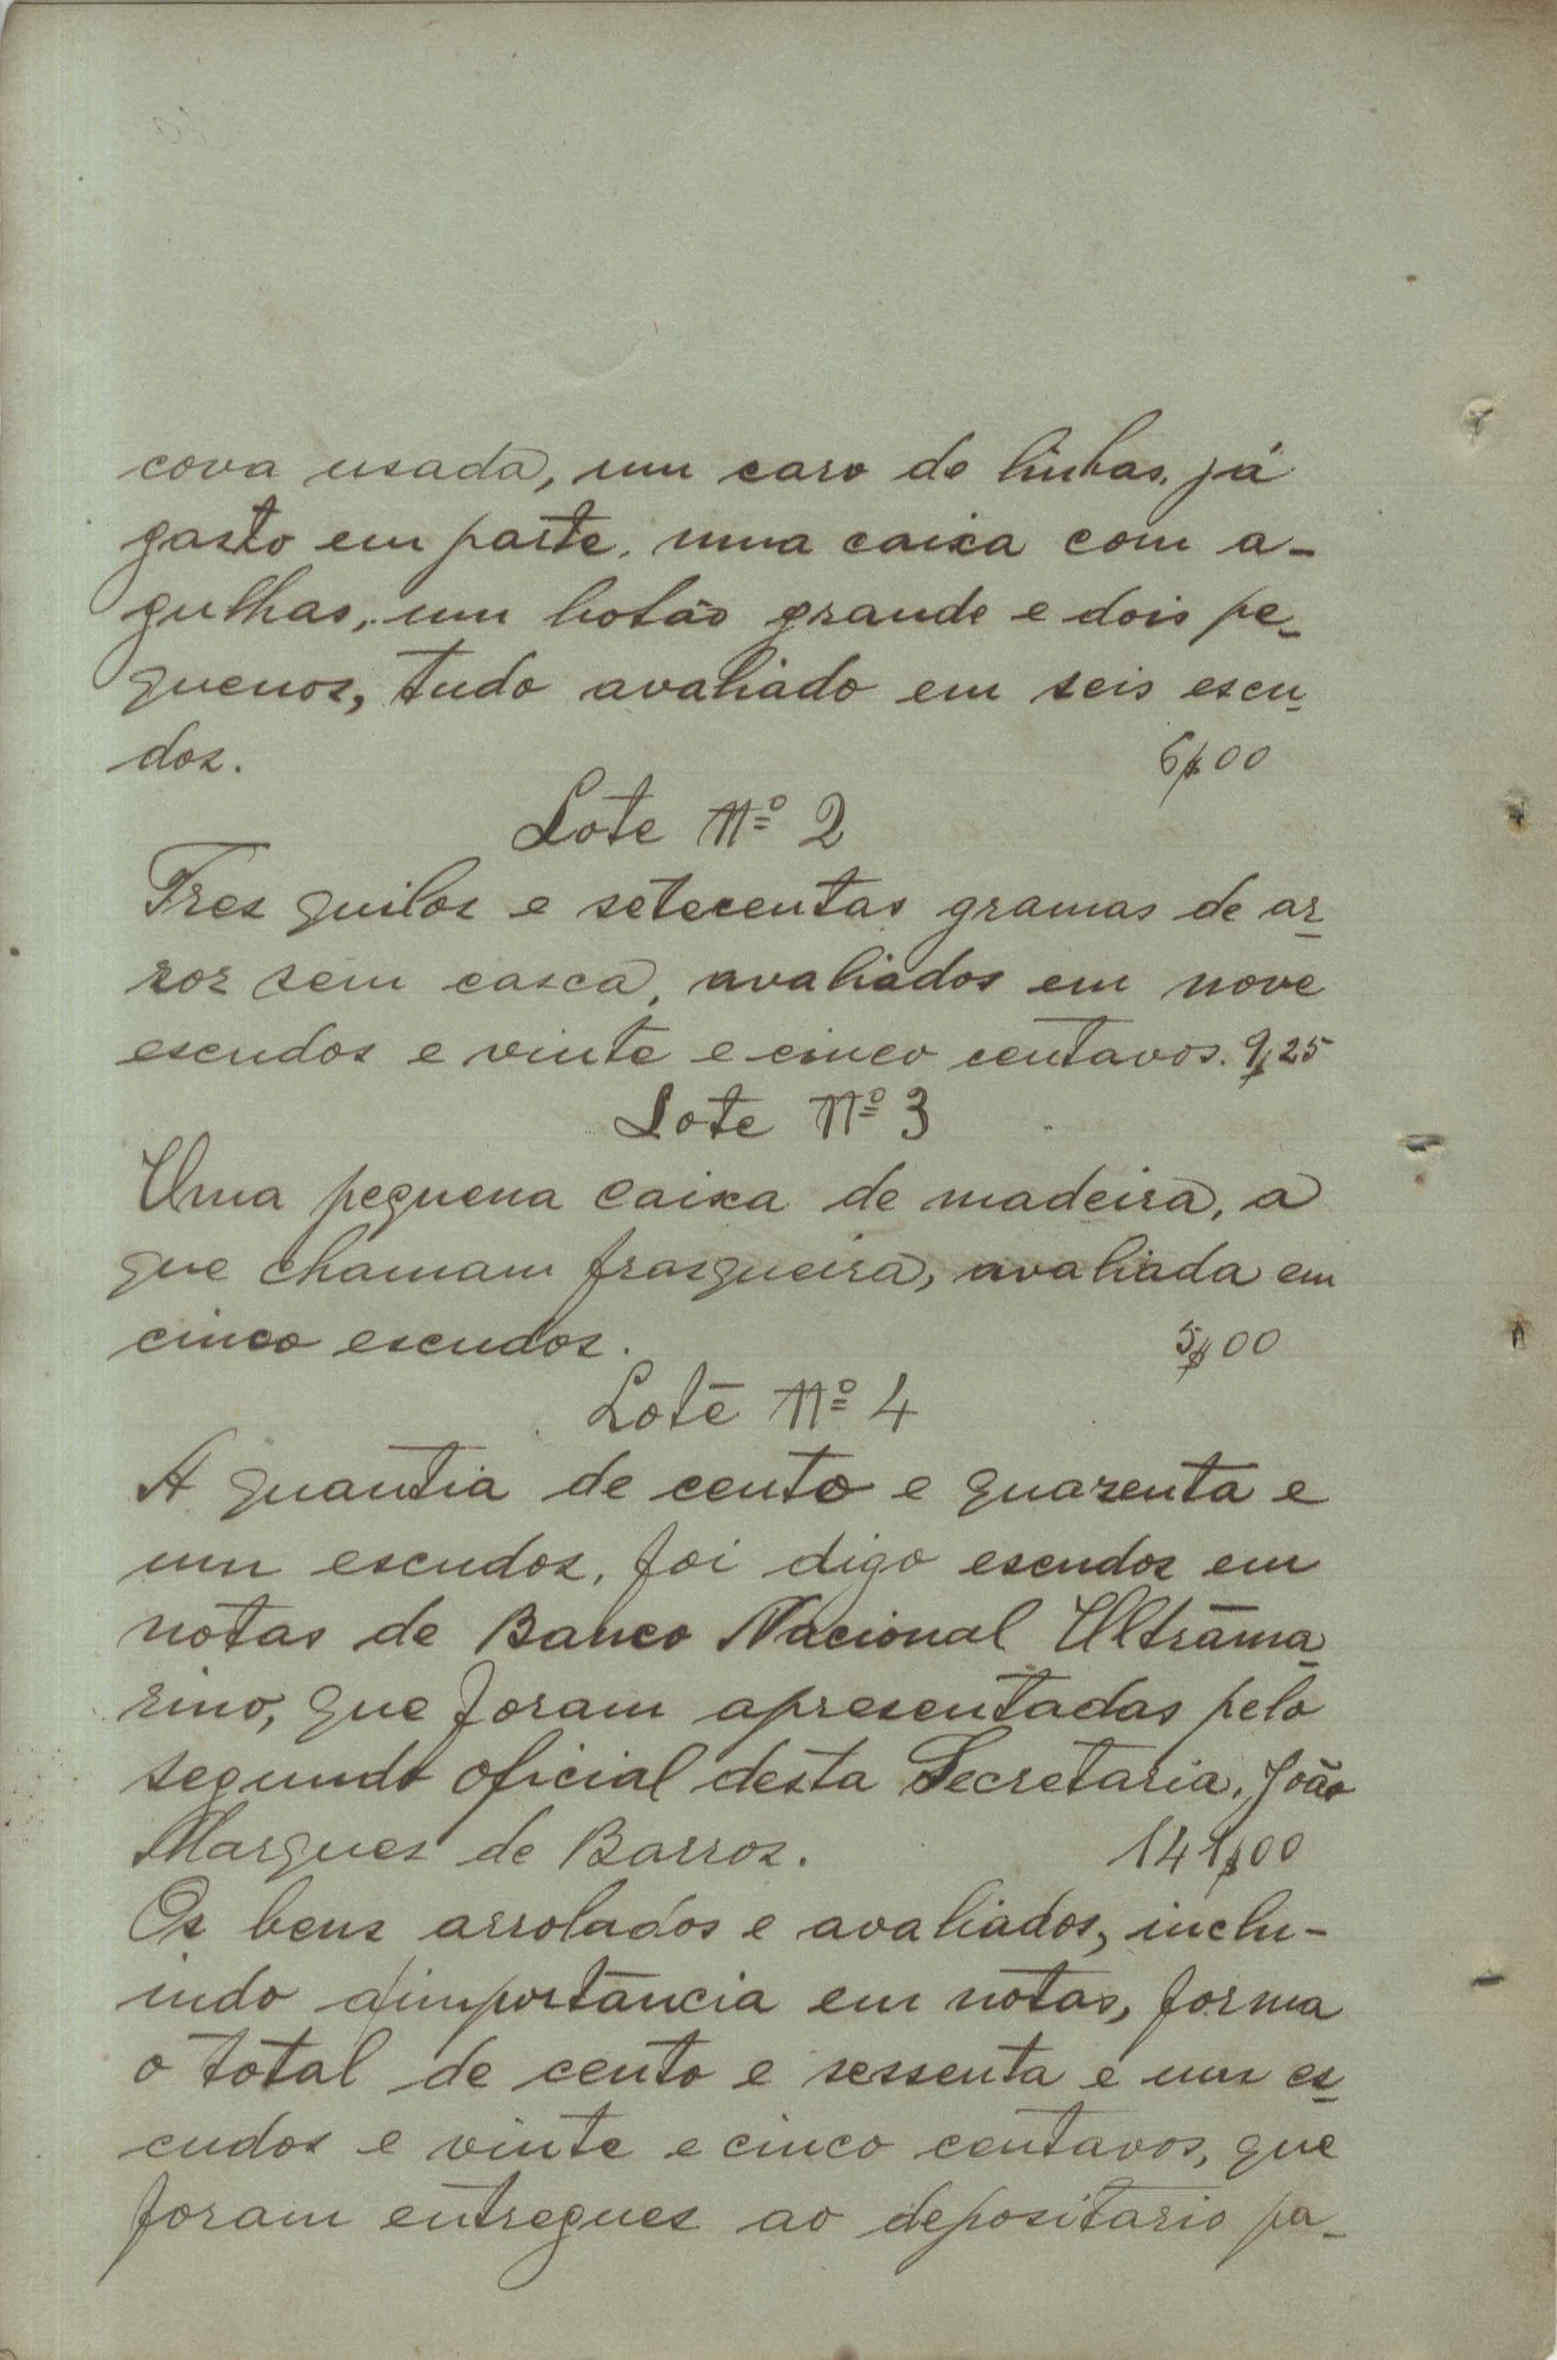 cova usada, um caro de linhas, já
gasto em parte, uma caixa com a-
gulhas, um botão grande e dois pe-
quenos, tudo avaliado em seis escu-
dos. 6$00
Lote Nº 2
Tres quilos e setecentas gramas de ar-
roz sem casca, avaliados em nove
escudos e vinte e cinco centavos. 9$25
Lote Nº 3
Uma pequena caixa de madeira, a
que chamam frasqueira, avaliada em
cinco escudos. 5$00
Lote Nº 4
A quantia de cento e quarenta e
um escudos, foi digo escudos em
notas de Banco Nacional Ultrama-
rino, que foram apresentadas pelo
segundo oficial desta Secretaria, João
Marques de Barros. 141$00
Os bens arrolados e avaliados, inclu-
indo a importancia em notas, forma
o total de cento e sessenta e um es-
cudos e vinte e cinco centavos, que
foram entregues ao depositario pa-